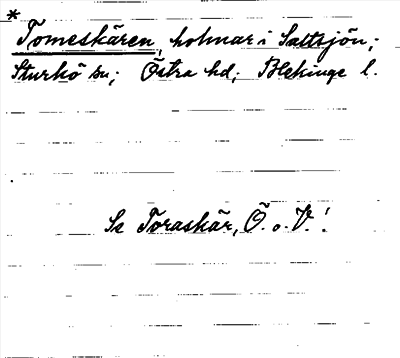 *
Tomeskären, holmar i Saltsjön;
Sturkö sn; Östra hd; Blekinge l.
Se Toraskär, Ö. o. V.!